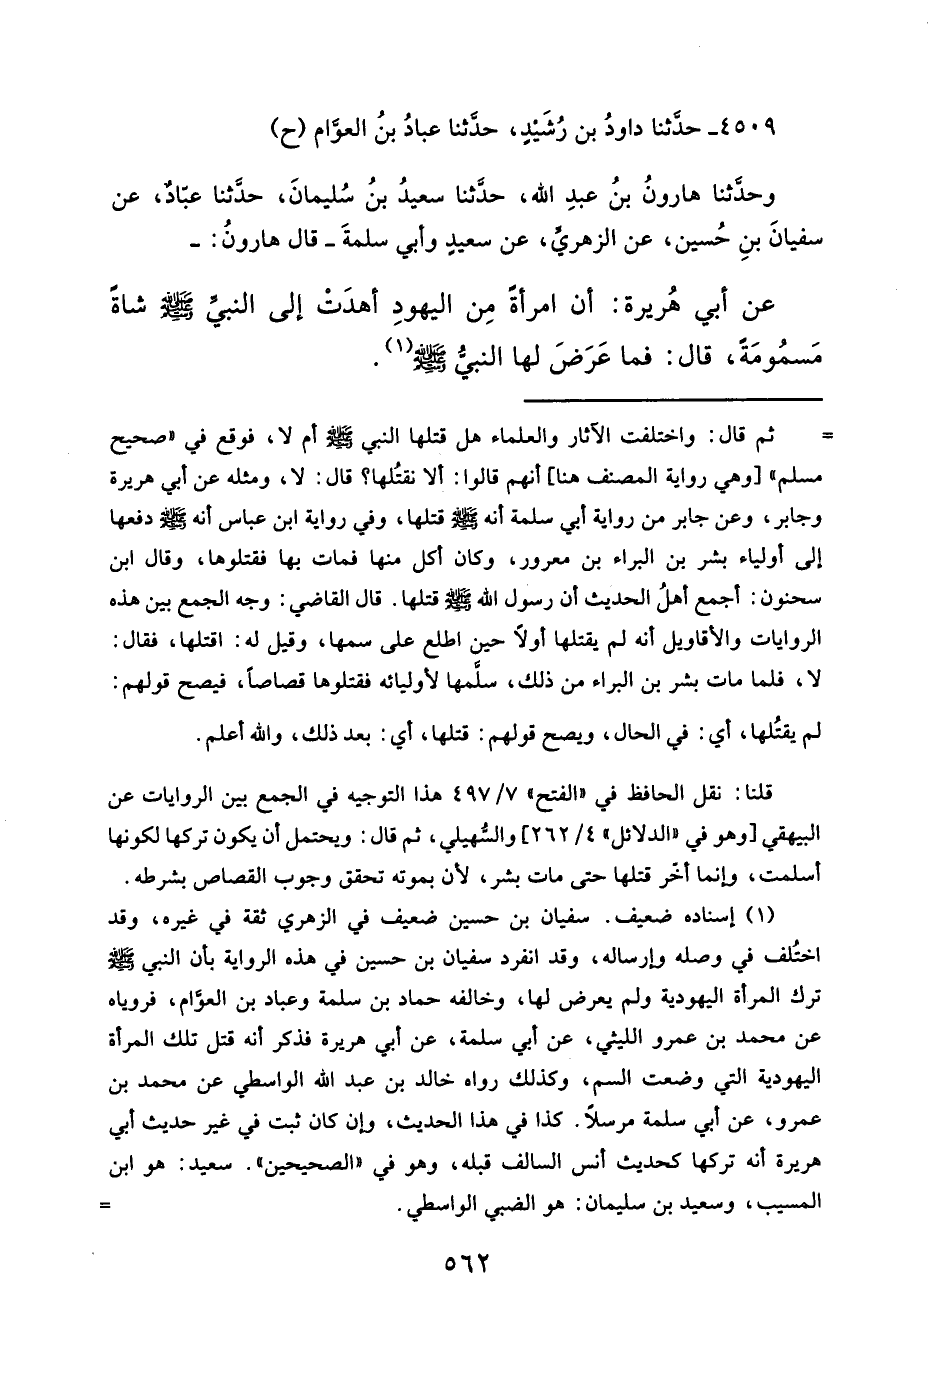 ٤٥٠٩ـ حدَّثنا داودُ بن رُشَيْدٍ، حدَّثنا عبادُ بنُ العوَّام (ح)
وحدَّثنا هارونُ بنُ عبدِ الله، حدَّثنا سعيدُ بنُ سُليمانَ، حدَّثنا عبّادٌ، عن
سفيانَ بنِ حُسين، عن الزهريِّ، عن سعيدٍ وأبي سلمةَ ـ قال هارونُ: ـ
عن أبي هُريرة: أن امرأةً مِن اليهودِ أهدَتْ إلى النبيِّ ﷺ شاةً
مَسمُومَةً، قال: فما عَرَضَ لها النبيُّ ﷺ(١).
= ثم قال: واختلفت الآثار والعلماء هل قتلها النبي ﷺ أم لا، فوقع في «صحيح
مسلم» [وهي رواية المصنف هنا] أنهم قالوا: ألا نقتُلها؟ قال: لا، ومثله عن أبي هريرة
وجابر، وعن جابر من رواية أبي سلمة أنه ﷺ قتلها، وفي رواية ابن عباس أنه ﷺ دفعها
إلى أولياء بشر بن البراء بن معرور، وكان أكل منها فمات بها فقتلوها، وقال ابن
سحنون: أجمع أهلُ الحديث أن رسول الله ﷺ قتلها. قال القاضي: وجه الجمع بين هذه
الروايات والأقاويل أنه لم يقتلها أولاً حين اطلع على سمها، وقيل له: اقتلها، فقال:
لا، فلما مات بشر بن البراء من ذلك، سلَّمها لأوليائه فقتلوها قصاصاً، فيصح قولهم:
لم يقتُلها، أي: في الحال، ويصح قولهم: قتلها، أي: بعد ذلك، والله أعلم.
قلنا: نقل الحافظ في «الفتح» ٤٩٧/٧ هذا التوجيه في الجمع بين الروايات عن
البيهقي [وهو في «الدلائل» ٤/ ٢٦٢] والسُّهيلي، ثم قال: ويحتمل أن يكون تركها لكونها
أسلمت، وإنما أخّر قتلها حتى مات بشر، لأن بموته تحقق وجوب القصاص بشرطه.
(١) إسناده ضعيف. سفيان بن حسين ضعيف في الزهري ثقة في غيره، وقد
اختُلف في وصله وإرساله، وقد انفرد سفيان بن حسين في هذه الرواية بأن النبي ﷺ
ترك المرأة اليهودية ولم يعرض لها، وخالفه حماد بن سلمة وعباد بن العوَّام، فروياه
عن محمد بن عمرو الليثي، عن أبي سلمة، عن أبي هريرة فذكر أنه قتل تلك المرأة
اليهودية التي وضعت السم، وكذلك رواه خالد بن عبد الله الواسطي عن محمد بن
عمرو، عن أبي سلمة مرسلاً. كذا في هذا الحديث، وإن كان ثبت في غير حديث أبي
هريرة أنه تركها كحديث أنس السالف قبله، وهو في «الصحيحين». سعيد: هو ابن
المسيب، وسعيد بن سليمان: هو الضبي الواسطي. =
٥٦٢